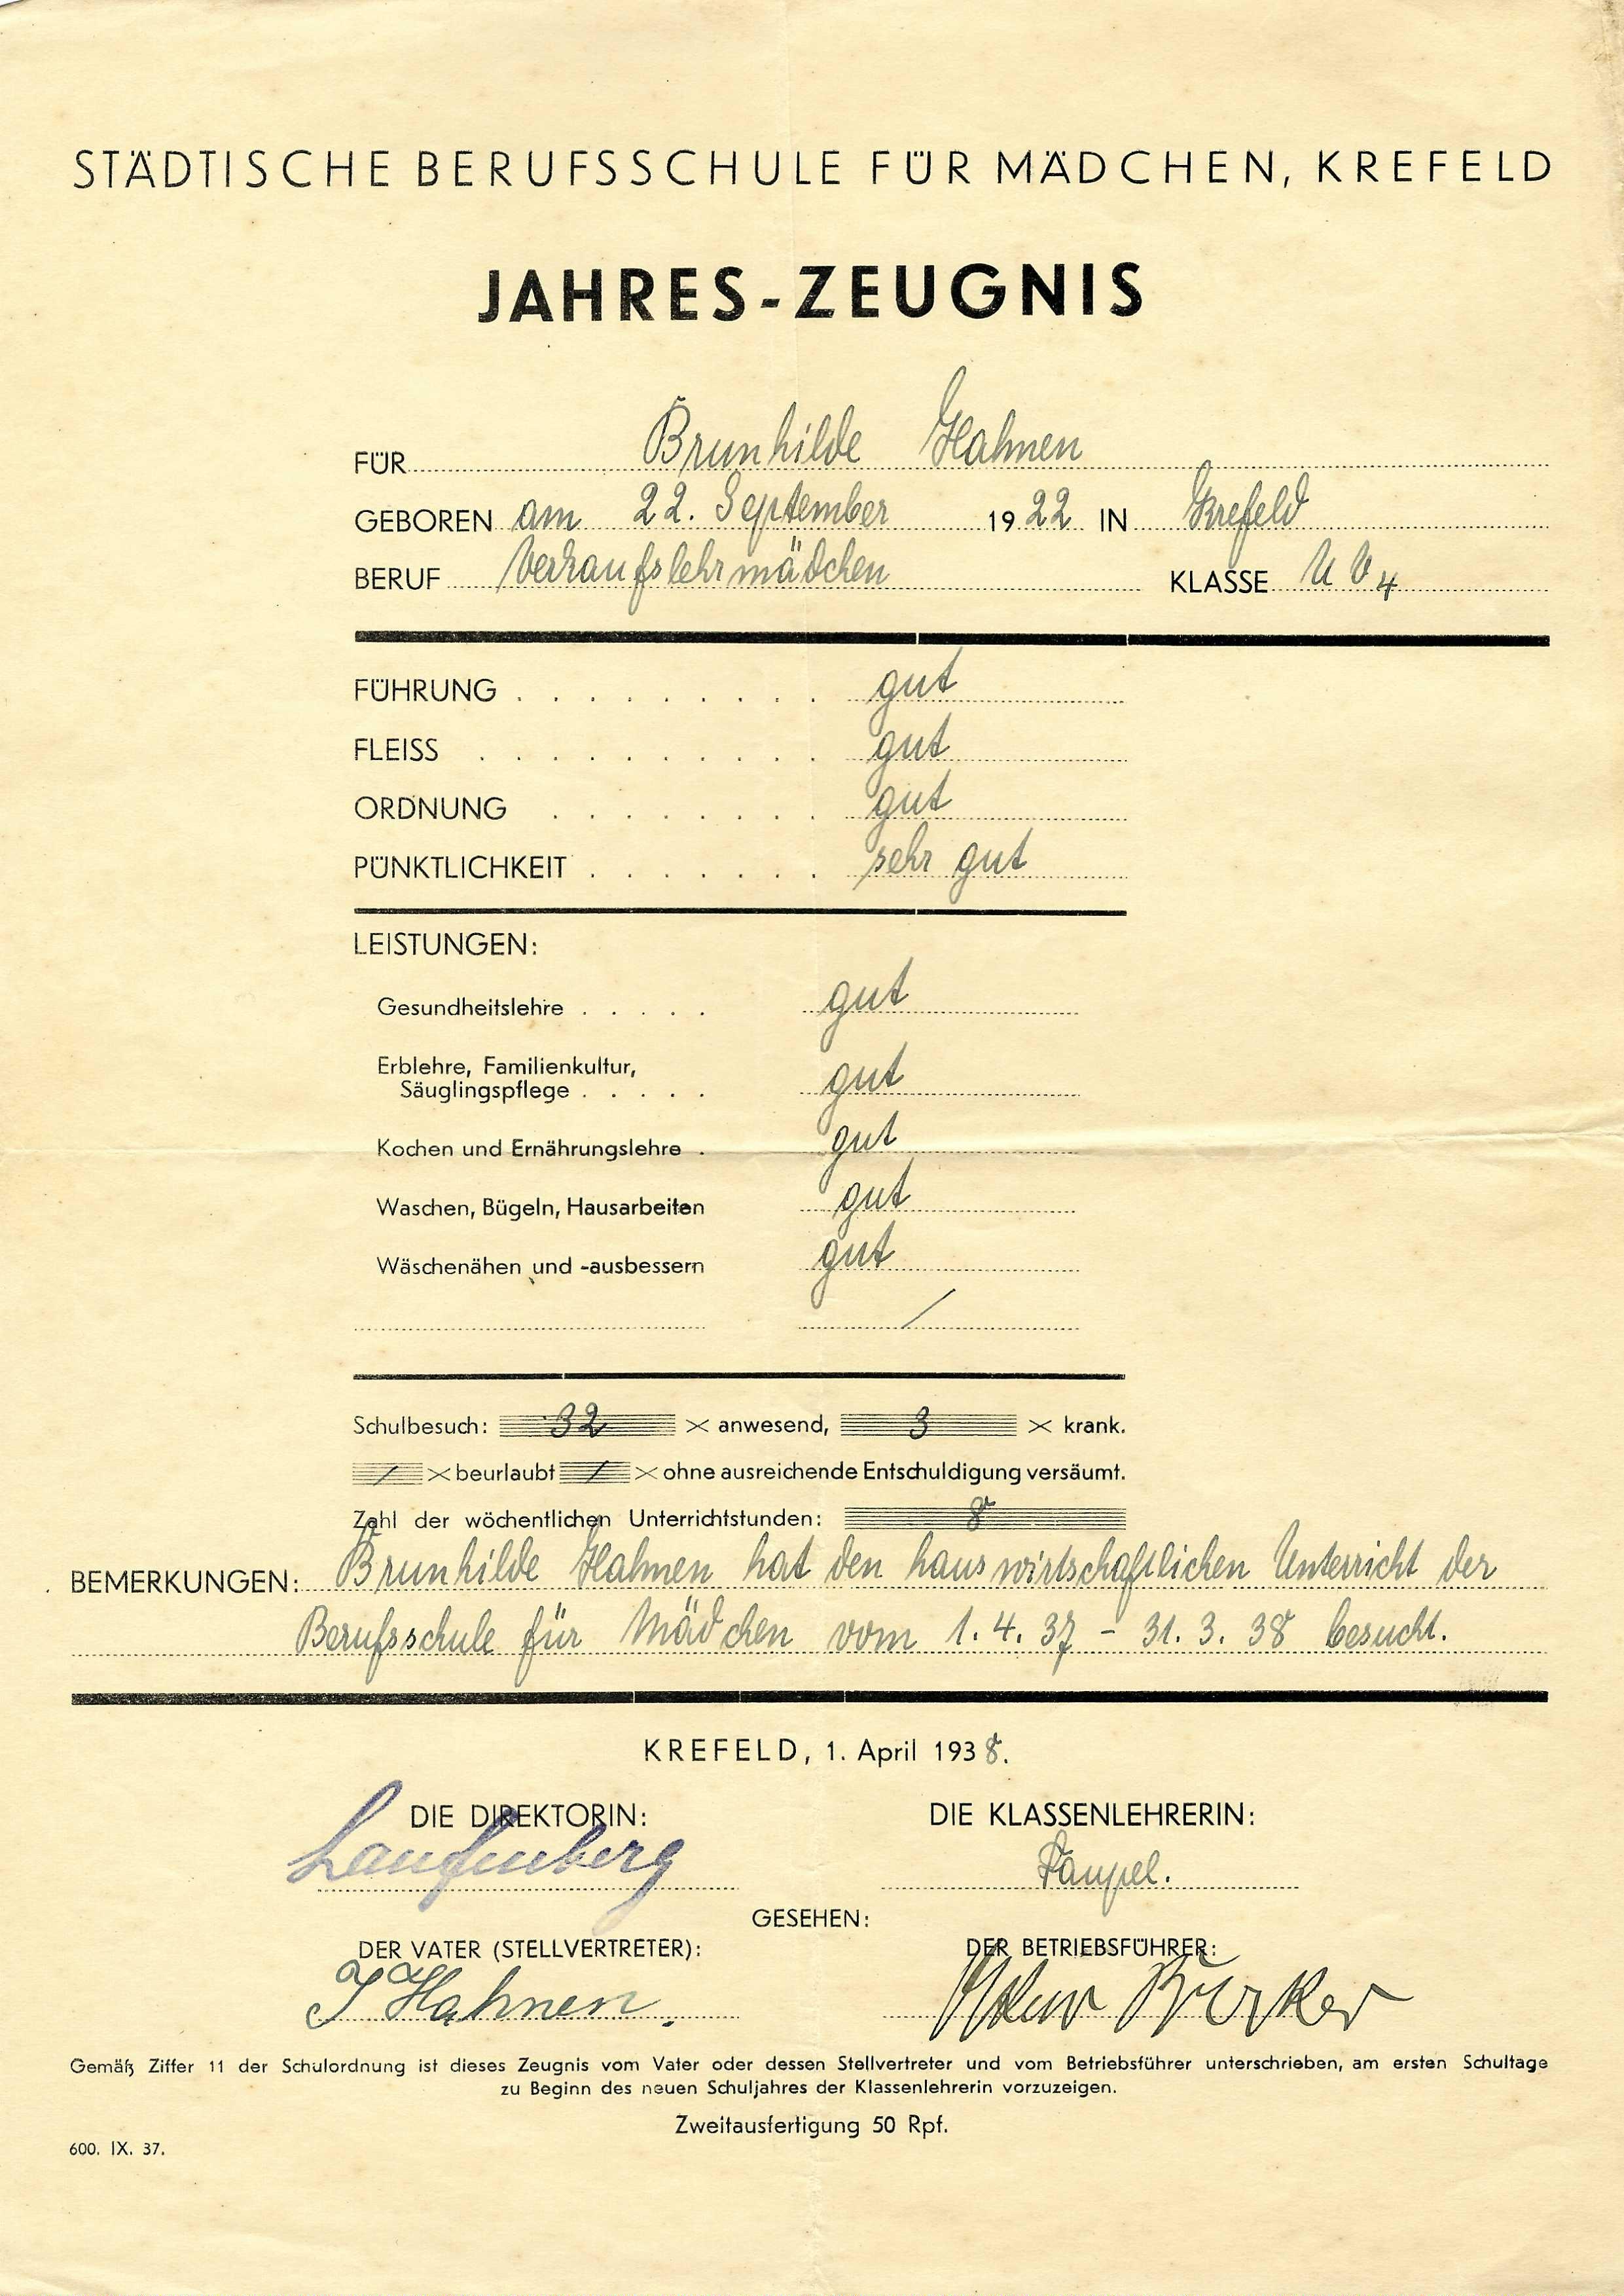 STÄDTISCHE BERUFSSCHULE FÜR MÄDCHEN, KREFELD
JAHRES-ZEUGNIS
FÜR Brunhilde Hahnen
GEBOREN am 22. September 1922 IN Krefeld
BERUF Verkaufslehrmädchen KLASSE U V 4
FÜHRUNG gut
FLEISS gut
ORDNUNG gut
PÜNKTLICHKEIT sehr gut
LEISTUNGEN:
Gesundheitslehre gut
Erblehre, Familienkultur,
Säuglingspflege gut
Kochen und Ernährungslehre gut
Waschen, Bügeln, Hausarbeiten gut
Wäschenähen und -ausbessern gut
/
Schulbesuch: 32 × anwesend, 3 × krank.
/ × beurlaubt / × ohne ausreichende Entschuldigung versäumt.
Zahl der wöchentlichen Unterrichtstunden: 8
BEMERKUNGEN: Brunhilde Hahnen hat den hauswirtschaftlichen Unterricht der
Berufsschule für Mädchen vom 1. 4. 37 - 31. 3. 38 besucht.
KREFELD, 1. April 1938.
DIE DIREKTORIN: DIE KLASSENLEHRERIN:
Laufenberg
GESEHEN:
DER VATER (STELLVERTRETER): DER BETRIEBSFÜHRER:
J Hahnen.
Gemäß Ziffer 11 der Schulordnung ist dieses Zeugnis vom Vater oder dessen Stellvertreter und vom Betriebsführer unterschrieben, am ersten Schultage
zu Beginn des neuen Schuljahres der Klassenlehrerin vorzuzeigen.
Zweitausfertigung 50 Rpf.
600. IX. 37.